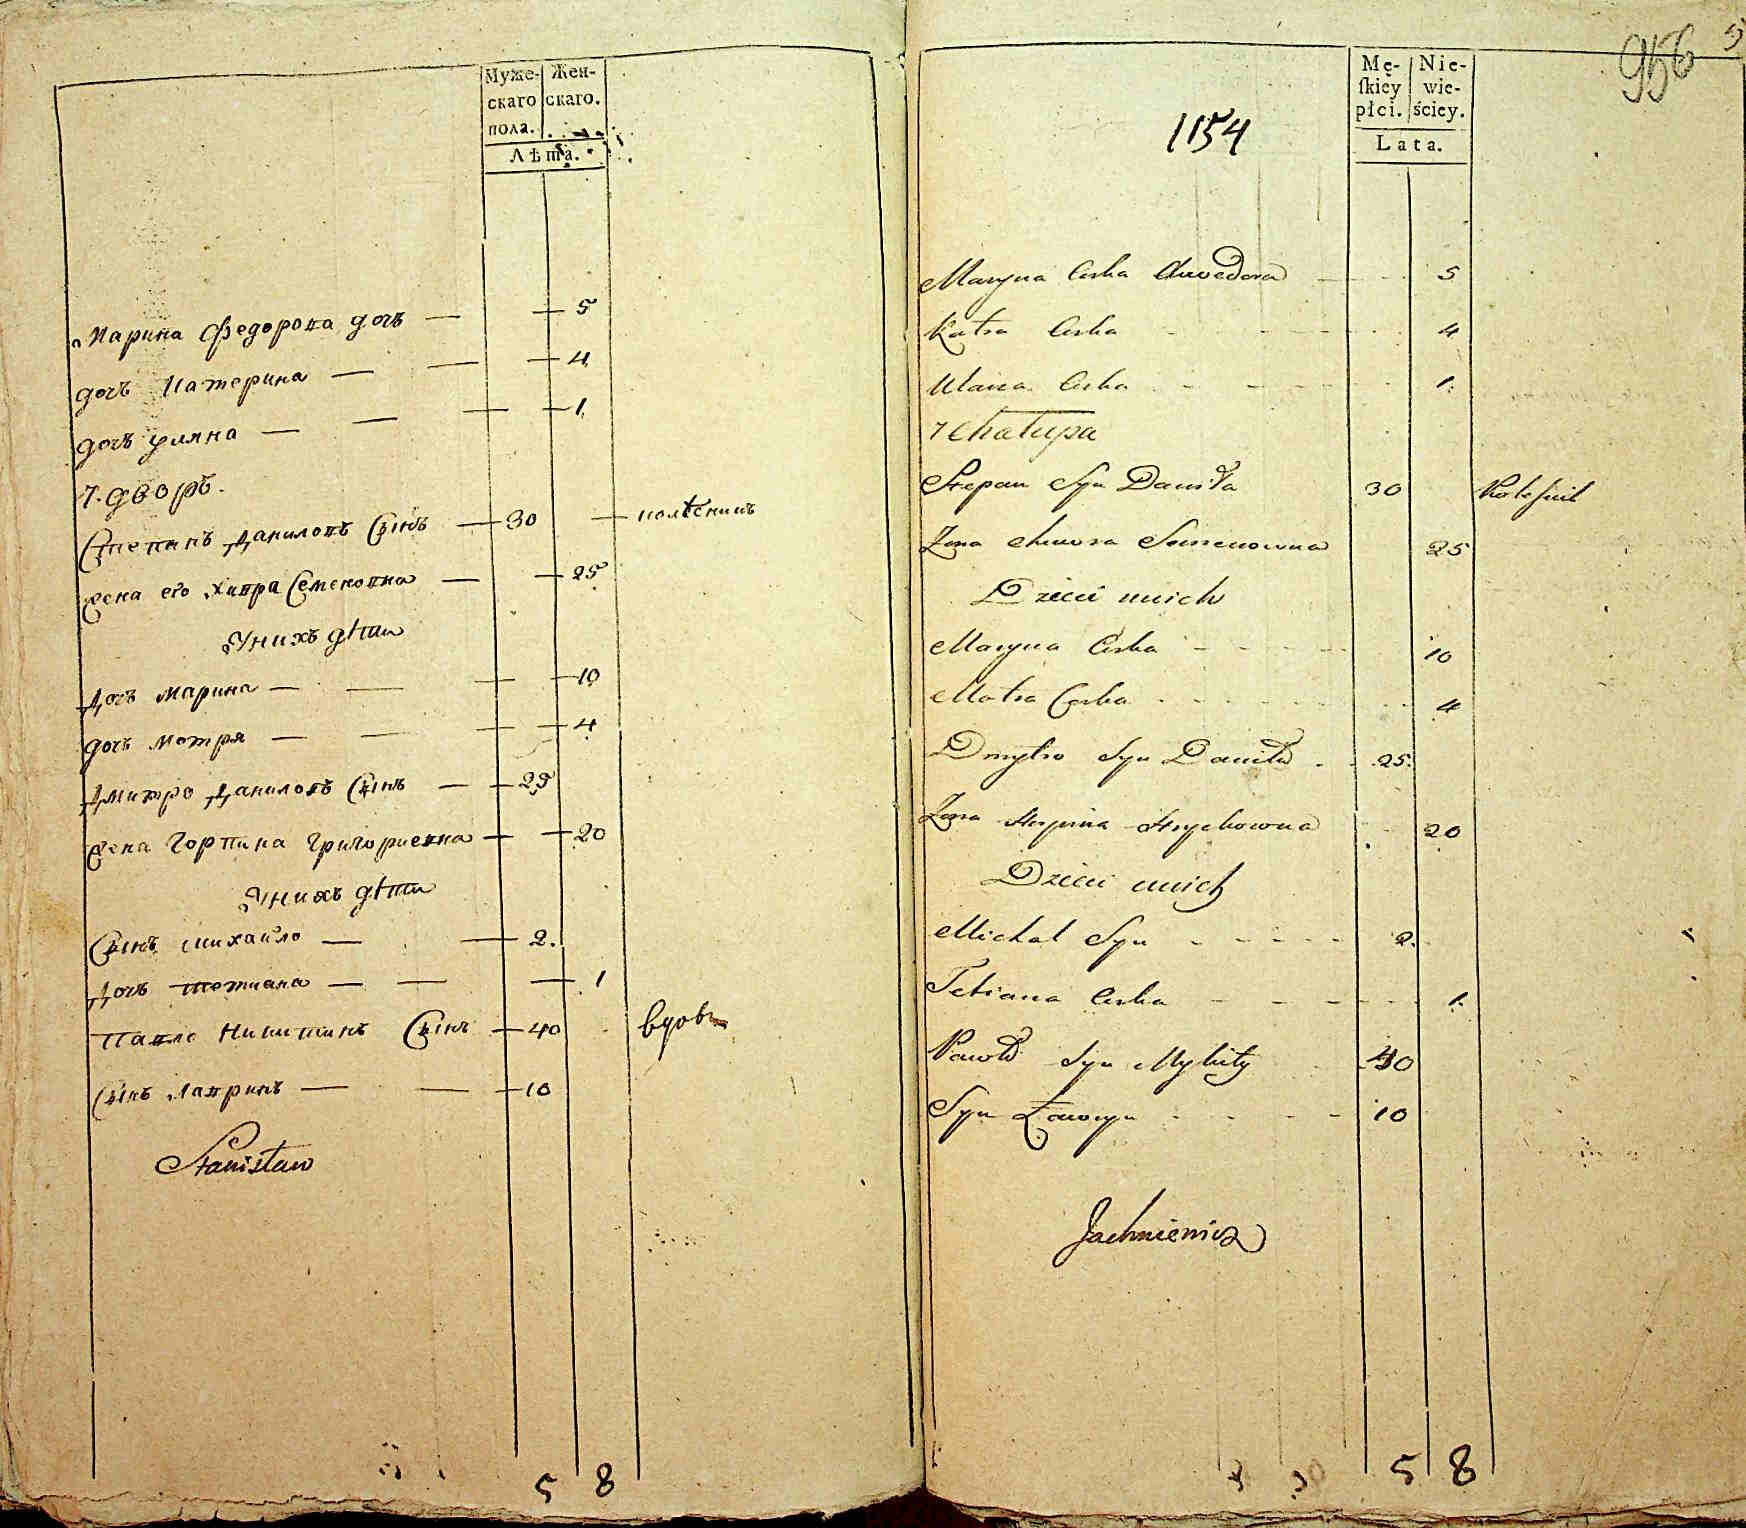 Муже- Жен-
скаго скаго.
пола.
Лѣта.
Марина Федорова дочь 5
дочь Катерина 4
дочь уляна 1
7. дворъ.
Степанъ Даниловъ Сынъ 30 колѣсникъ
Жена его Хивра Семеновна 25
Унихъ дѣти
Дочь Марина 10
дочь мотря 4
Дмитро Даниловъ Сынъ 25
Жена Горпина Григориевна 20
Унихъ дѣти
Сынъ михайло 2.
Дочь тетиана 1
Павло Никитинъ Сынъ 40 вдовъ
Сынъ Лавринъ 10
Stanisław
5 8
956
1154
Mę- Nie-
ſkiey wie-
płci. ściey.
Lata.
Maryna Corka Chwedora 5
Katra Corka 4
Ulana Corka 1.
7 Chałupa
Stepan Syn Daniła 30 Kolesnik
Żona Chiwra Semenowna 25
Dzieci unich
Maryna Corka 10
Motra Corka 4
Dmytro Syn Daniła 25.
Żona Horpina Hryhowna 20
Dzieci unich
Michał Syn 2.
Tetiana Corka 1.
Pawło Syn Mykity 40
Syn Ławryn 10
Jachniewicz
5 8